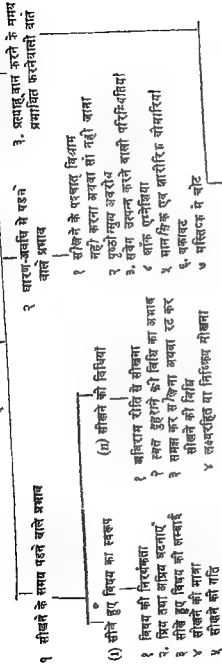 १ सीखने के समय पड़ने वाले प्रभाव
(i) सीखे हुए विषय का स्वरूप
१ विषय की निरर्थकता
२. प्रिय तथा अप्रिय घटनाएँ
३ सीखे हुए विषय की लम्बाई
४ सीखने की मात्रा
५ सीखने की गति
(ii) सीखने की विधियाँ
१ अविराम रीति से सीखना
२ स्वत दुहराने की विधि का अभाव
३ समझ कर सीखना अथवा रट कर
सीखने की विधि
४ लक्ष्यरहित या निष्क्रिय सीखना
२ धारण-अवधि मे पडने
वाले प्रभाव
१ सीखने के पश्चात् विश्राम
नहीं करना अथवा सो नही जाना
२ पृष्ठोन्मुख अवरोध
३. संवेग उत्पन्न करने वाली परिस्थितियां
४ शॉक एम्नेशिया
५ मानसिक एव शारीरिक बीमारियाँ
६. थकावट
७ मस्तिष्क मे चोट
३. प्रत्याह्वान करने के समय
प्रभावित करनेवाली बातें